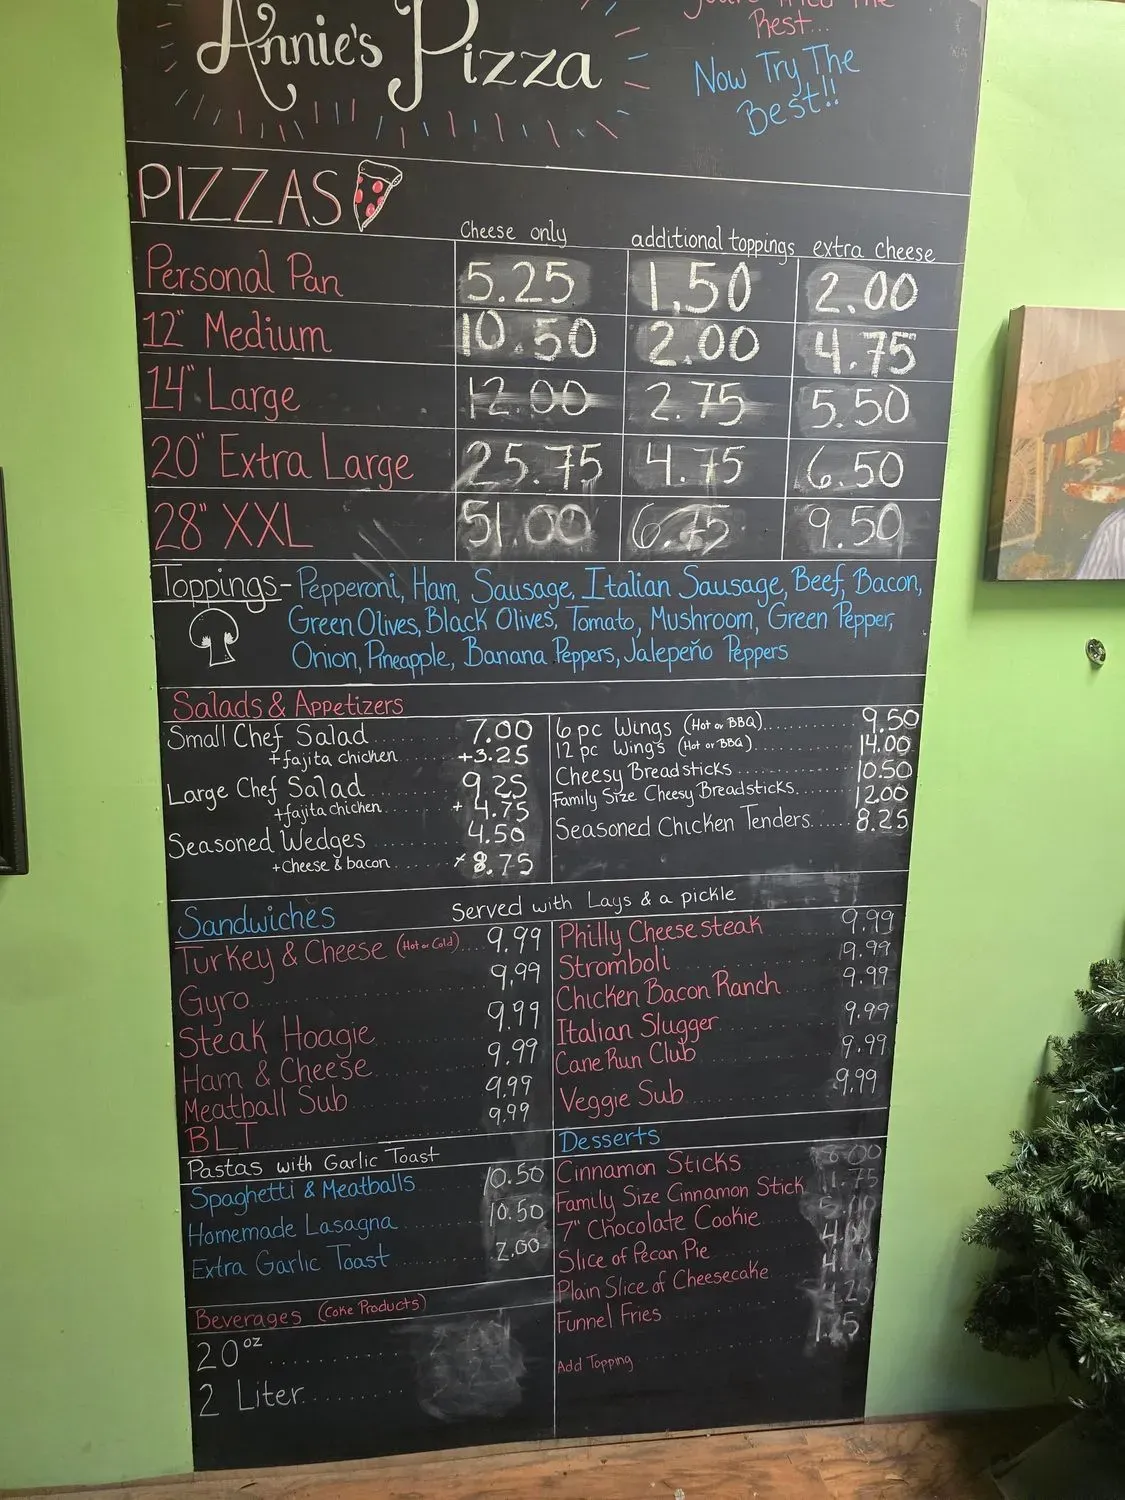 Annie's Pizza
Best...
Now Try The
Best!!
PIZZAS
Cheese only additional toppings extra cheese
Personal Pan 5.25 1.50 2.00
12" Medium 10.50 2.00 4.75
14" Large 12.00 2.75 5.50
20" Extra Large 25.75 4.75 6.50
28" XXL 51.00 6.75 9.50
Toppings - Pepperoni, Ham, Sausage, Italian Sausage, Beef, Bacon,
Green Olives, Black Olives, Tomato, Mushroom, Green Pepper,
Onion, Pineapple, Banana Peppers, Jalepeño Peppers
Salads & Appetizers
Small Chef Salad 7.00
+fajita chicken +3.25
Large Chef Salad 9.25
+fajita chicken + 4.75
Seasoned Wedges 4.50
+Cheese & bacon + 8.75
6 pc Wings (Hot or BBQ) 9.50
12 pc Wings (Hot or BBQ) 14.00
Cheesy Breadsticks 10.50
Family Size Cheesy Breadsticks 12.00
Seasoned Chicken Tenders 8.25
Sandwiches Served with Lays & a pickle
Turkey & Cheese (Hot or Cold) 9.99
Gyro 9.99
Steak Hoagie 9.99
Ham & Cheese 9.99
Meatball Sub 9.99
BLT 9.99
Philly Cheesesteak 9.99
Stromboli 9.99
Chicken Bacon Ranch 9.99
Italian Slugger 9.99
Cane Run Club 9.99
Veggie Sub 9.99
Pastas with Garlic Toast
Spaghetti & Meatballs 10.50
Homemade Lasagna 10.50
Extra Garlic Toast 2.00
Beverages (Coke Products)
20oz
2 Liter
Desserts
Cinnamon Sticks
Family Size Cinnamon Stick
7" Chocolate Cookie
Slice of Pecan Pie
Plain Slice of Cheesecake
Funnel Fries
Add Topping